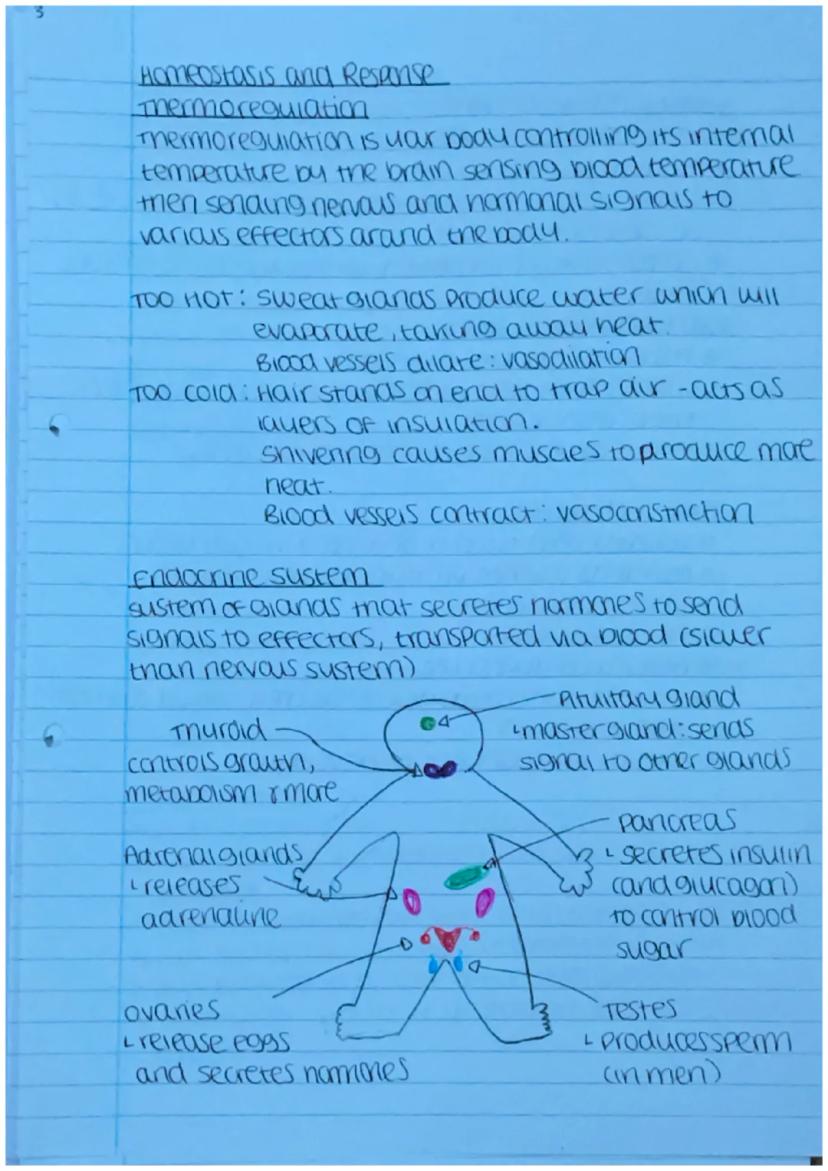 3
Homeostasis and Response
Thermoregulation
Thermoregulation is your body controlling its internal
temperature by the brain sensing blood temperature
then sending nervous and hormonal signals to
various effectors around the body.
TOO HOT: Sweat glands produce water which will
evaporate, taking away heat.
Blood vessels dilate: vasodilation
TOO COLD: Hair stands on end to trap air - acts as
layers of insulation.
Shivering causes muscles to produce more
heat.
Blood vessels contract: vasoconstriction
Endocrine system
System of glands that secretes hormones to send
signals to effectors, transported via blood (slower
than nervous system)
Pituitary gland
↳master gland: sends
signal to other glands
Thyroid
controls growth,
metabolism & more
Pancreas
↳ secretes insulin
(and glucagon)
to control blood
sugar
Adrenal glands
↳releases
adrenaline
Ovaries
↳release eggs
and secretes hormones
Testes
↳ produces sperm
(in men)